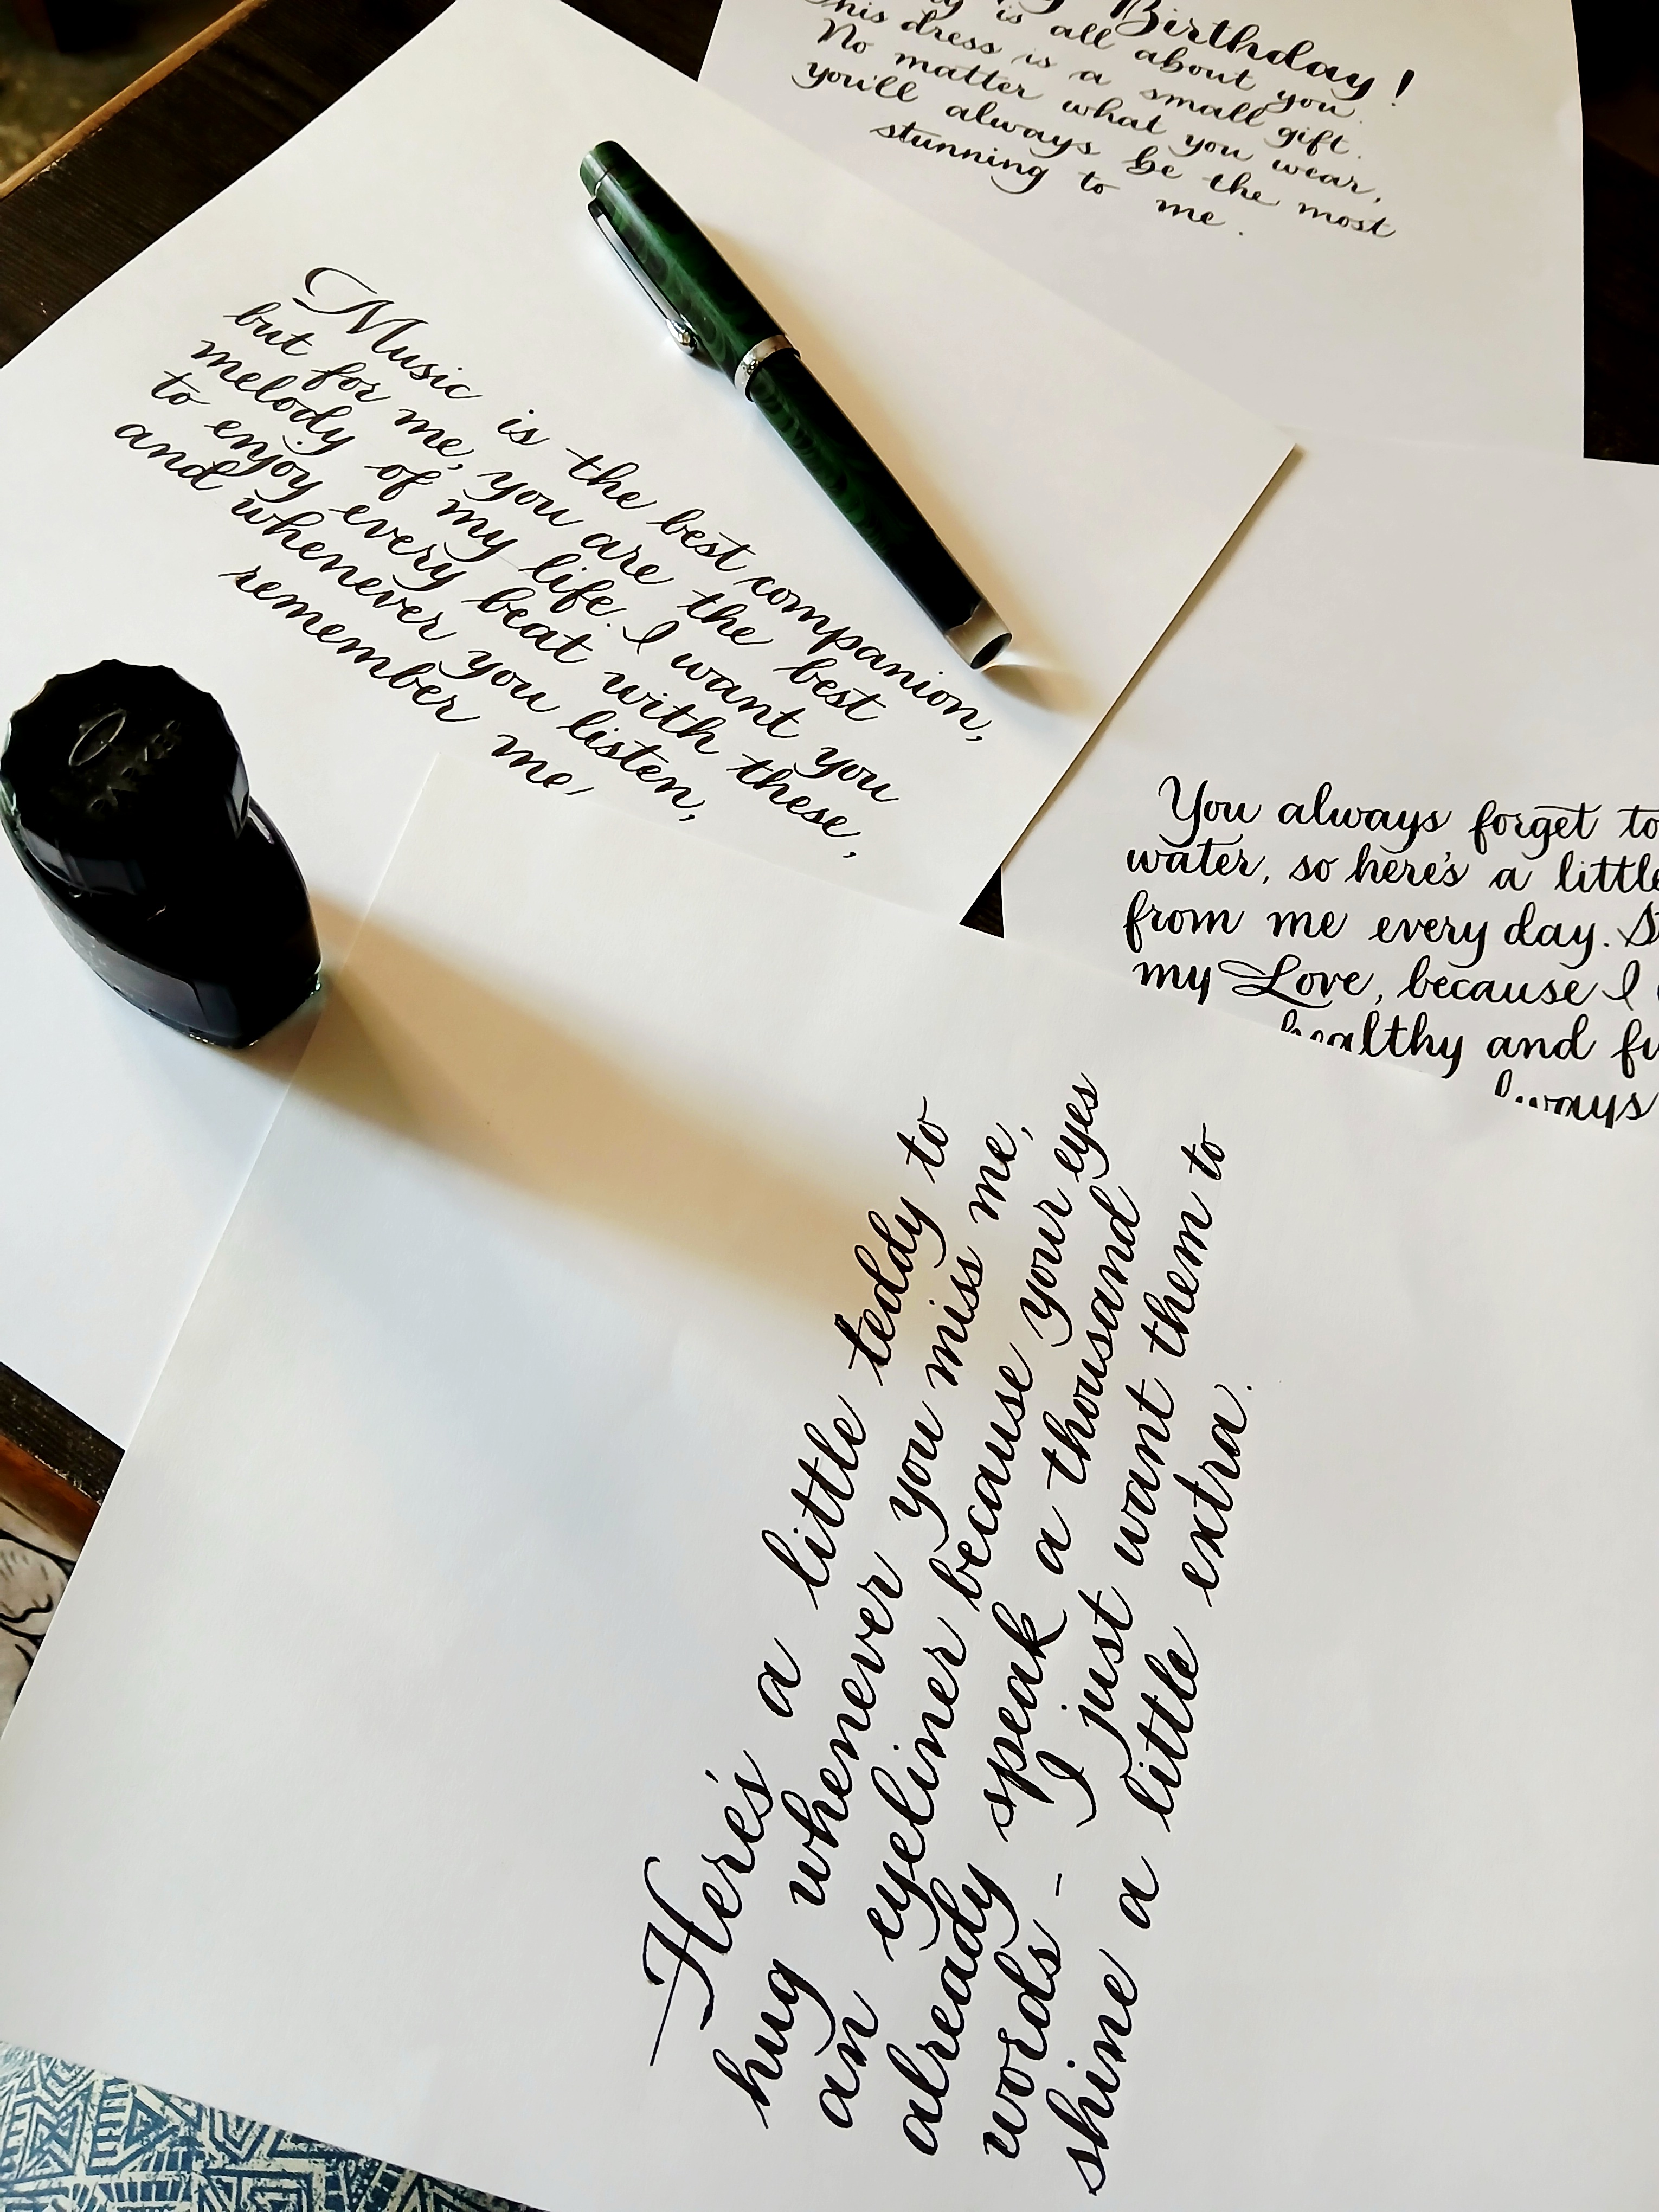 Birthday!
is all about you.
This dress is a small gift.
No matter what you wear,
you'll always be the most
stunning to me.
Music is the best companion,
but for me, you are the best
melody of my life. I want you
to enjoy every beat with these,
and whenever you listen,
remember me,
PARKER
You always forget to
water, so here's a little
from me every day.
my Love, because I
healthy and
Here's a little teddy to
hug whenever you miss me,
an eyeliner because your eyes
already speak a thousand
words - I just want them to
shine a little extra.